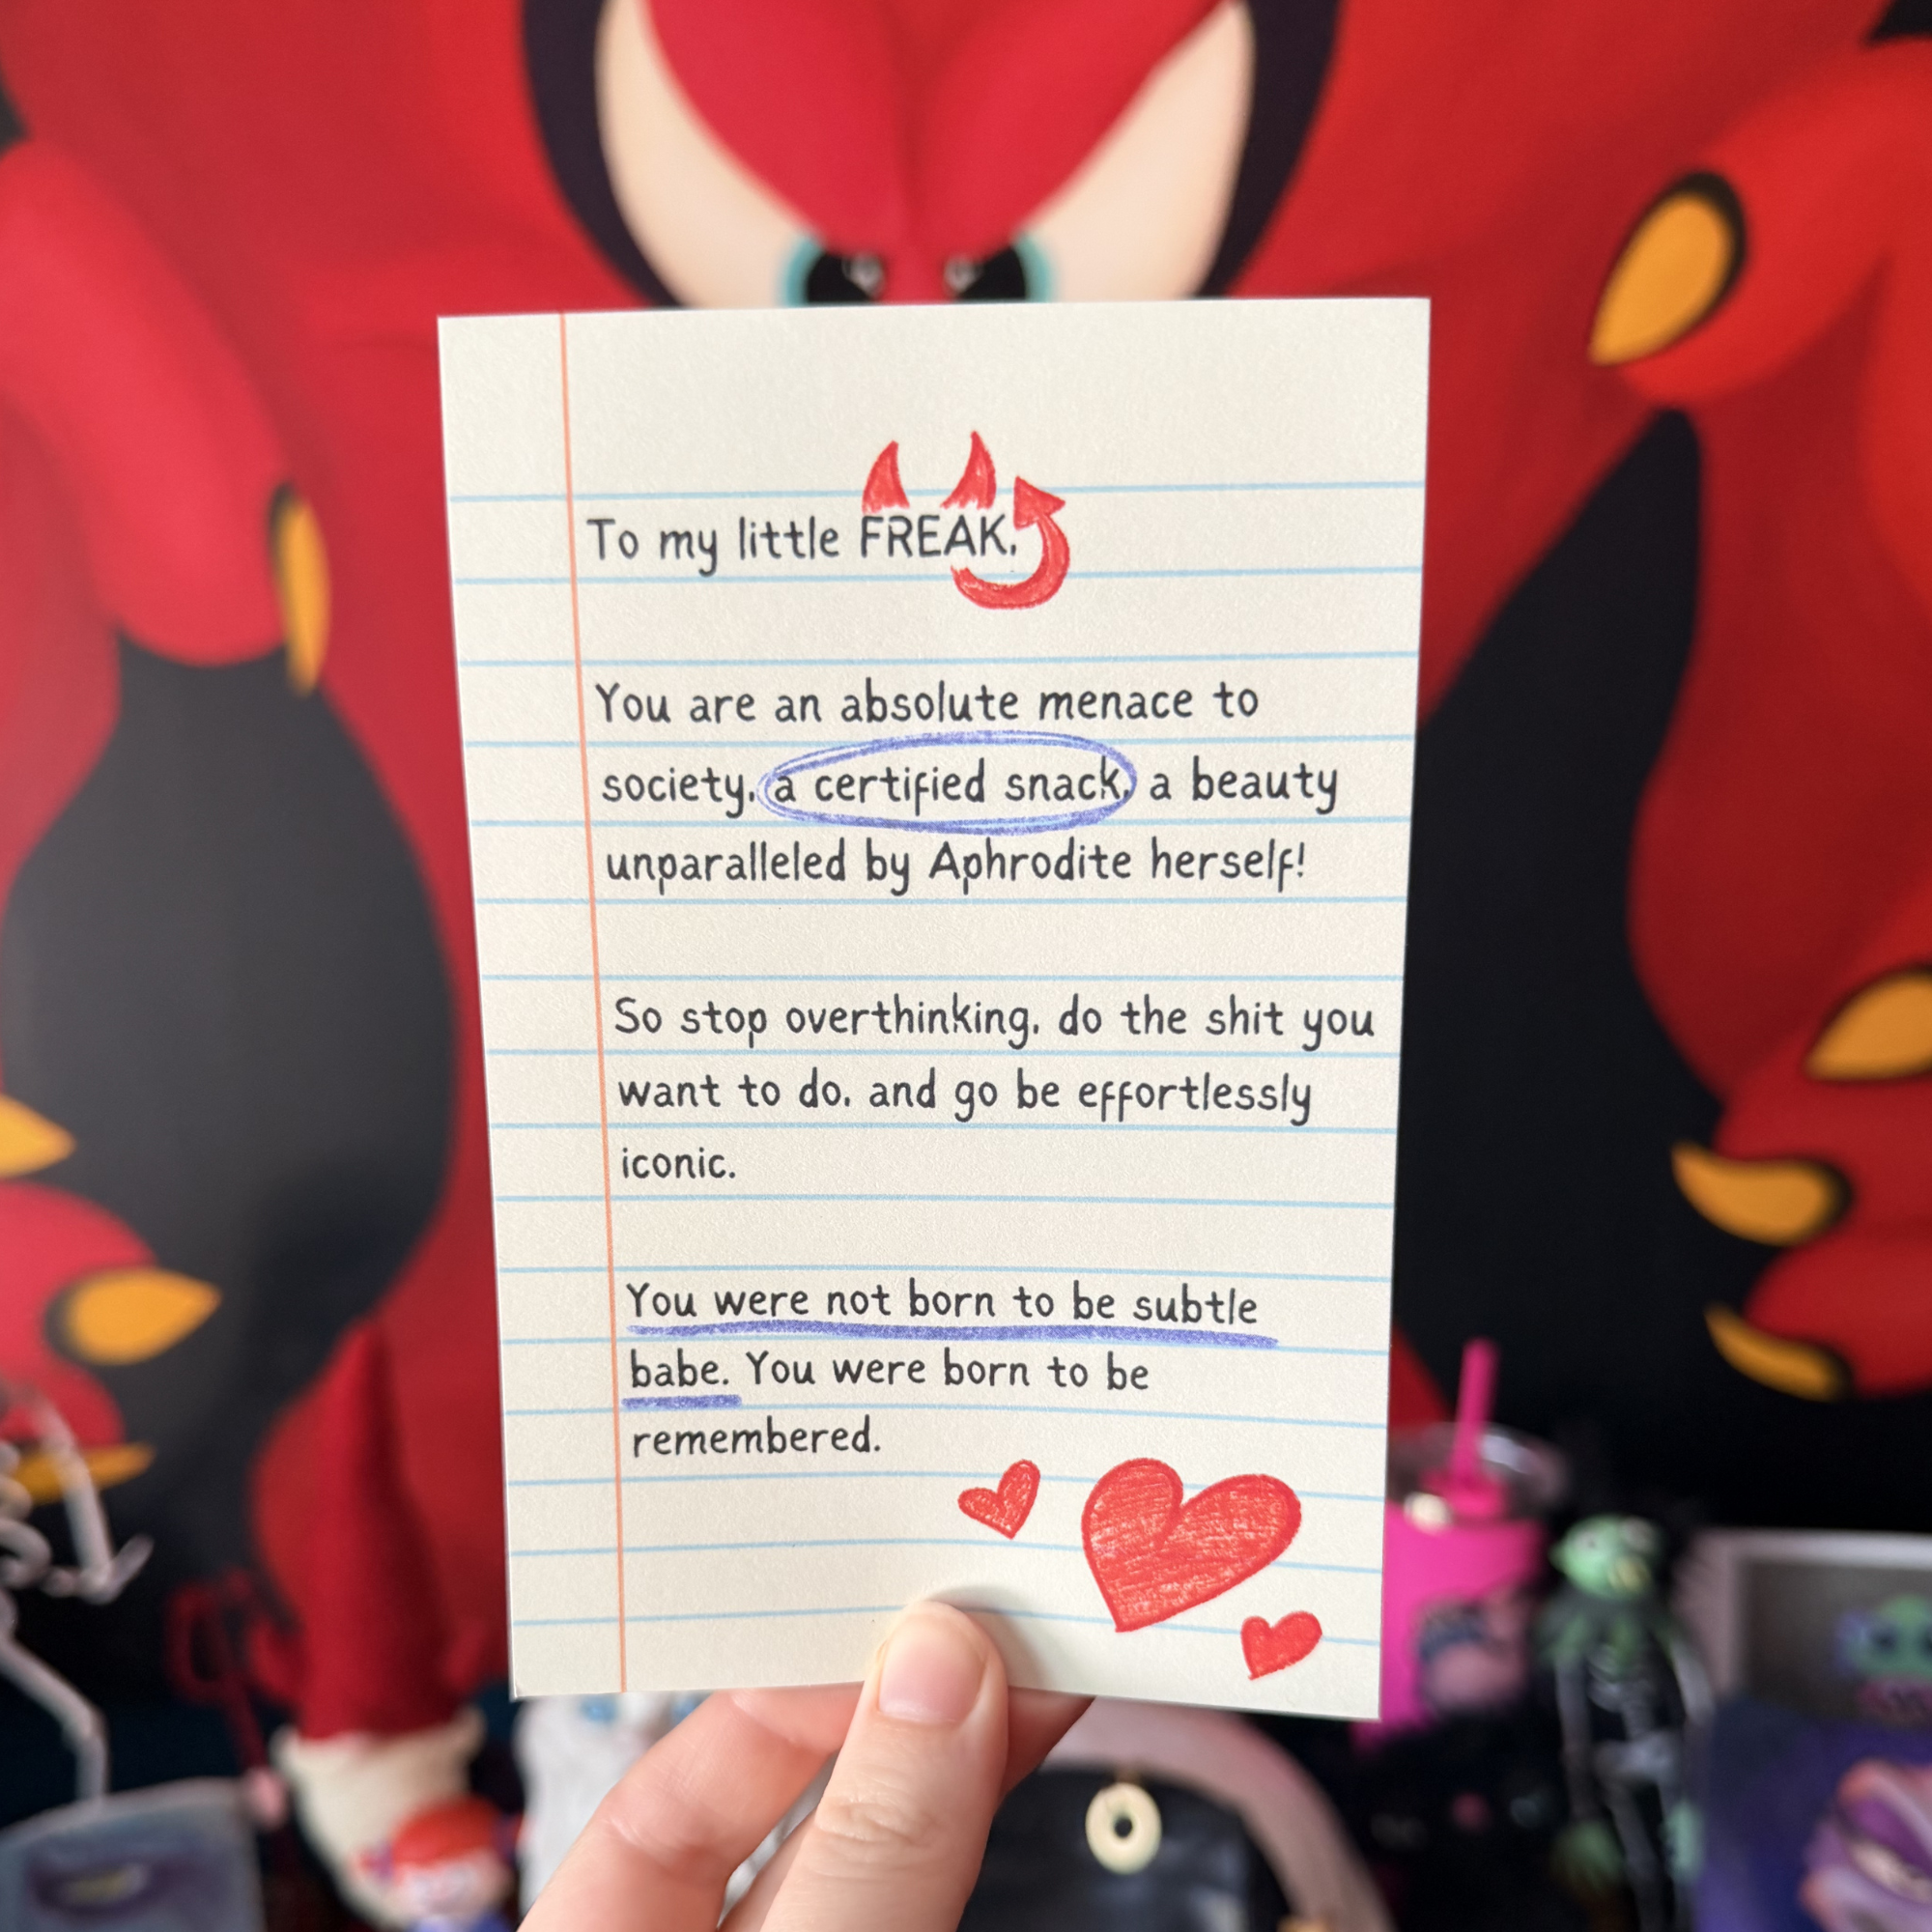 To my little FREAK,
You are an absolute menace to
society, a certified snack, a beauty
unparalleled by Aphrodite herself!
So stop overthinking, do the shit you
want to do, and go be effortlessly
iconic.
You were not born to be subtle
babe. You were born to be
remembered.